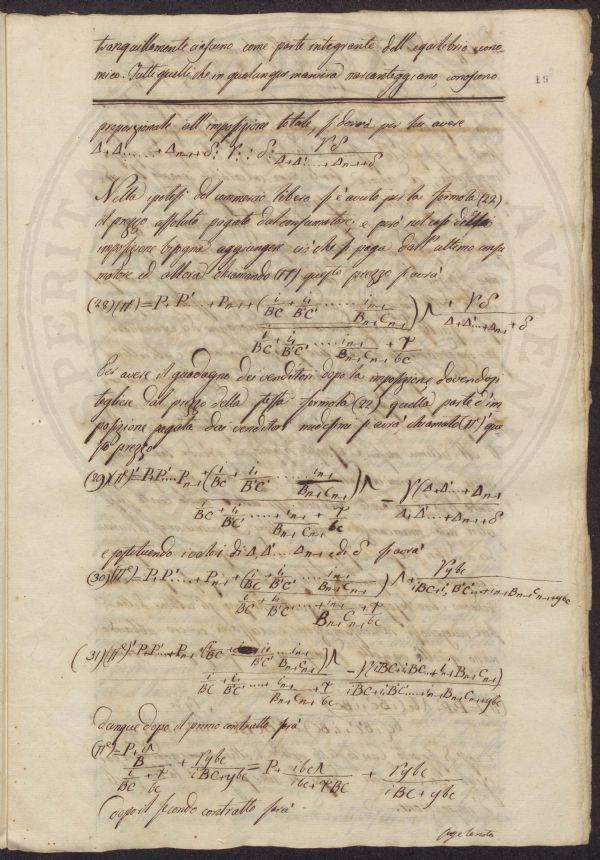 tranquillamente ciascuno come parte integrante dell'equilibrio econo-
mico. Tutti quelli che in qualunque maniera mercanteggiano, conoscono
18
proporzionale all'imposizione totale si dovrà per ha avere
Δ+Δ......+Δn-1+δ : r :: δ : rδ / Δ+Δ....+Δn-1+δ
Nella ipotesi del commercio libero si è avuto per la formola (22)
il prezzo assoluto pagato dal consumatore; e però nel caso della
imposizione bisogna aggiungere ciò che si paga dall'ultimo
ed allora chiamando (π) questo prezzo si avrà
(28)(π)=P+P'....+Pn-1+(i/BC + i,/B'C' ...... in-1/Bn-1Cn-1)Λ / i/BC + i,/B'C' ..... in-1/Bn-1Cn-1 + r/bc + rδ / Δ+Δ'...+Δn-1+δ
Per avere il guadagno dei venditori dopo la imposizione dovendosi
togliere dal prezzo della stessa formola (22) quella parte d'im-
posizione pagata dai venditori medesimi si avrà chiamato (π)' que-
sto prezzo
(29)(π)'=P+P'....Pn-1+(i/BC + i,/B'C' ..... in-1/Bn-1Cn-1)Λ / i/BC + i,/B'C' ..... in-1/Bn-1Cn-1 + r/bc - r(Δ+Δ'...+Δn-1) / Δ+Δ'...+Δn-1+δ
e sostituendo i valori di Δ, Δ'....Δn-1 e di δ si avrà
(30)(π)=P+P'.....+Pn-1+(i/BC + i,/B'C' ..... in-1/Bn-1Cn-1)Λ / i/BC + i,/B'C' ..... in-1/Bn-1Cn-1 + r/bc + rybc / iBC+i,B'C'....+in-1Bn-1Cn-1+ybc
(31)(π)'=P+P'....+Pn-1+(i/BC + i,/B'C' .... in-1/Bn-1Cn-1)Λ / i/BC + i,/B'C' ..... in-1/Bn-1Cn-1 + r/bc - r(iBC+i,B'C'...+in-1Bn-1Cn-1) / iBC+i,B'C'....+in-1Bn-1Cn-1+ybc
dunque dopo il primo contratto sarà
(π)=P+ iΛ/B / i/BC + r/bc + rybc / iBC+ybc = P+ ibcΛ / ibc+rBC + rybc / iBC+ybc
dopo il secondo contratto sarà